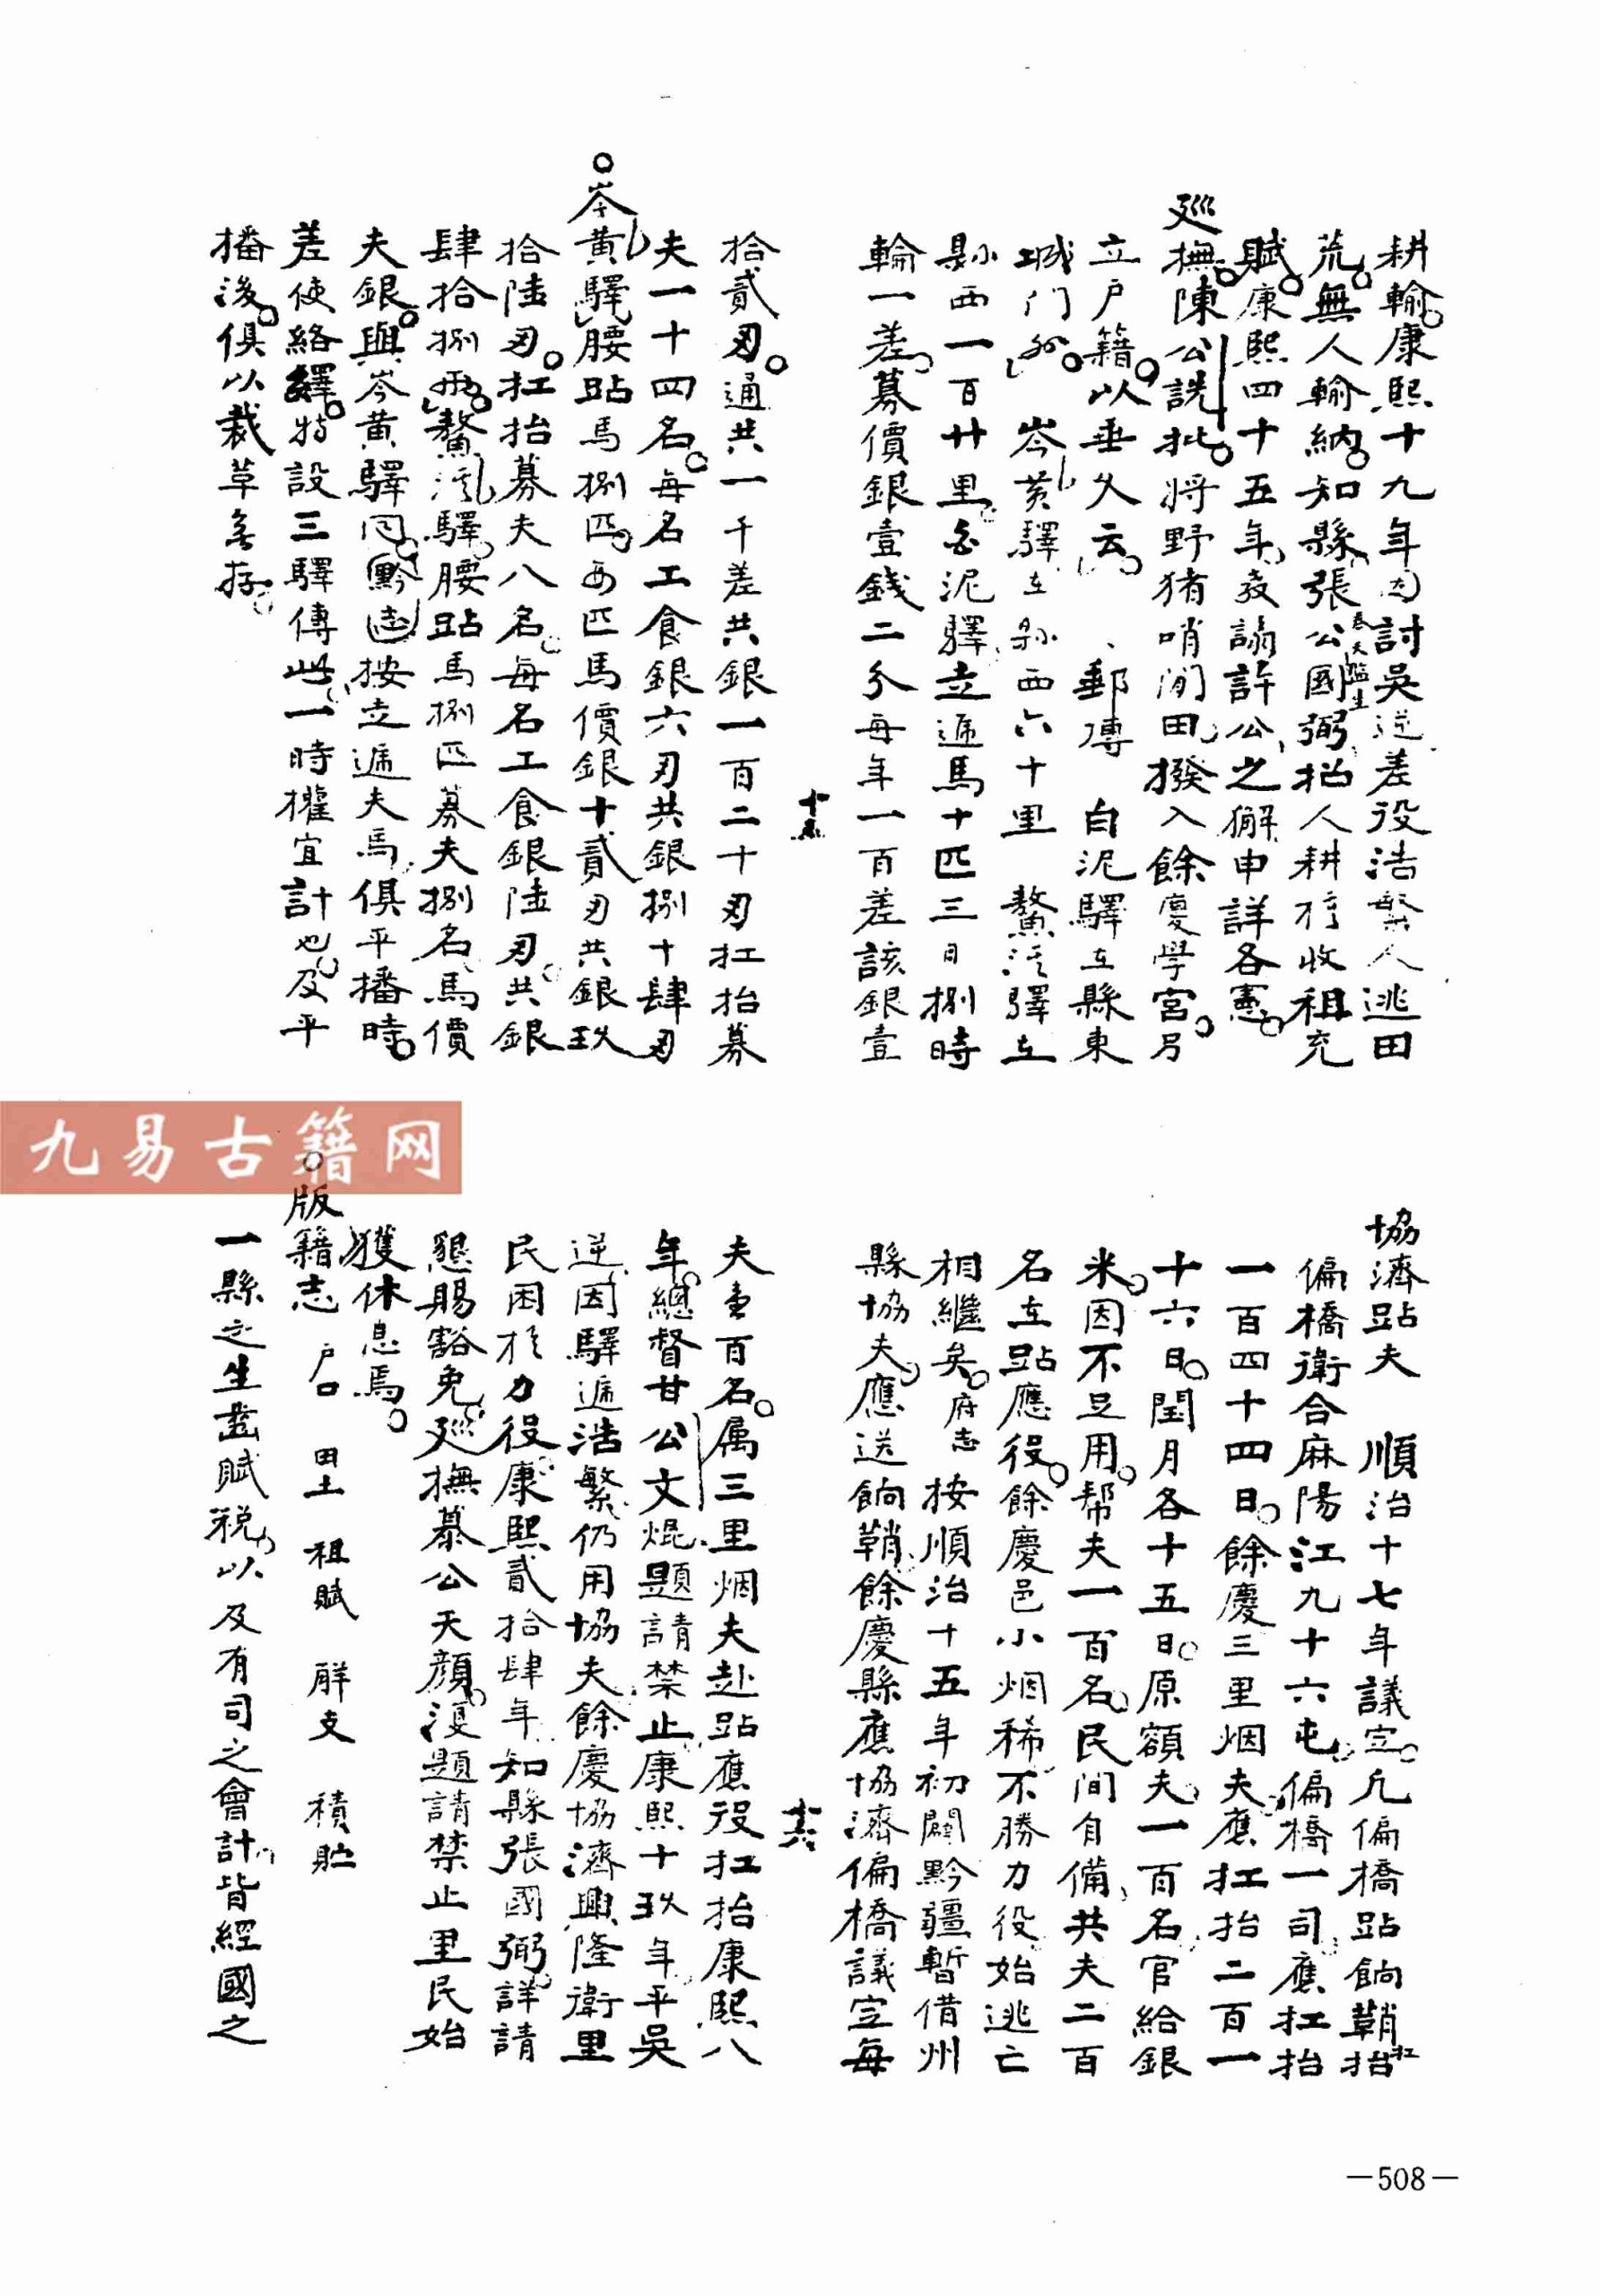 耕輸康熙十九年因討吳逆差役浩繁人逃田
荒無人輸納知縣張公國弼招人耕種收租充
賦康熙四十五年教諭許公之獬申詳各憲
廵撫陳公詵批將野猪哨閒田撥入餘慶學宮另
立户籍以垂久云 郵傳 白泥驛在縣東
城门外 岑黄驛在縣西六十里 鰲溪驛在
縣西一百廿里白泥驛立逓馬十匹三日捌時
輪一差募價銀壹錢二分每年一百差該銀壹
十五
拾貳刄通共一千差共銀一百二十刄扛抬募
夫一十四名每名工食銀六刄共銀捌十肆刄
岑黄驛腰跕馬捌匹每匹馬價銀十貳刄共銀玖
拾陸刄扛抬募夫八名每名工食銀陸刄共銀
肆拾捌兩鰲溪驛腰跕馬捌匹募夫捌名馬價
夫銀與岑黄驛同黔志按立逓夫馬俱平播時
差使絡繹特設三驛傳此一時權宜計也及平
播後俱以裁革無存
協濟跕夫 順治十七年議定凡偏橋跕餉鞘扛抬
偏橋衛合麻陽江九十六屯偏橋一司應扛抬
一百四十四日餘慶三里烟夫應扛抬二百一
十六日閏月各十五日原額夫一百名官給銀
米因不足用帮夫一百名民間自備共夫二百
名在跕應役餘慶邑小烟稀不勝力役始逃亡
相繼矣府志 按順治十五年初闢黔疆暫借州
縣協夫應送餉鞘餘慶縣應協濟偏橋議定每
十六
夫壹百名属三里烟夫赴跕應役扛抬康熙八
年總督甘公文焜題請禁止康熙十玖年平吳
逆因驛逓浩繁仍用協夫餘慶協濟興隆衛里
民困於力役康熙貳拾肆年知縣張國弼詳請
懇賜豁免廵撫慕公天顔復題請禁止里民始
獲休息焉
版籍志 户口 田土 租賦 觧支 積貯
一縣之生齒賦税以及有司之會計皆經國之
—508—
九易古籍网